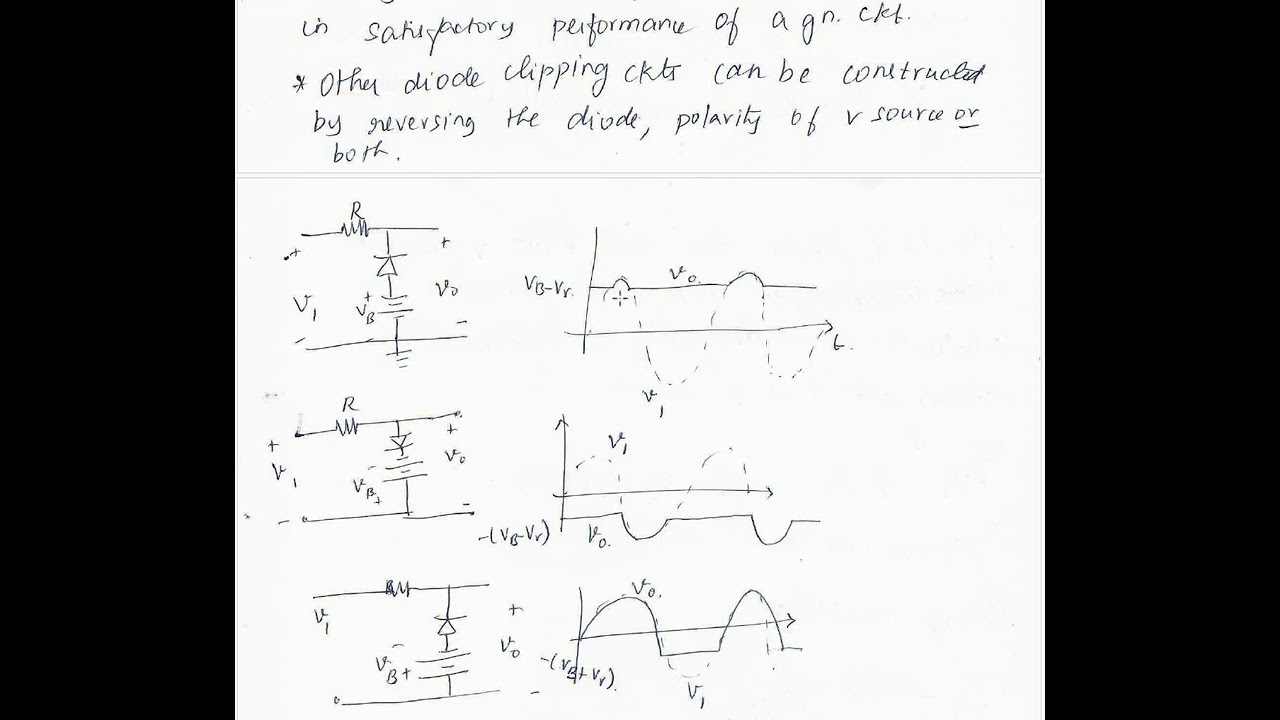 in satisfactory performance of a gn. ckt.
* Other diode clipping ckts can be constructed
by reversing the diode, polarity of v source or
both.
R
+ +
V₁ + V_B V₀
- -
V_B-Vr. V₀
t.
V₁
R
+ +
V₁ - V_B + V₀
- -
V₁
-(V_B-Vr) V₀.
R
V₁ +
- V_B + V₀
-
V₀.
-(V_B+Vr).
V₁